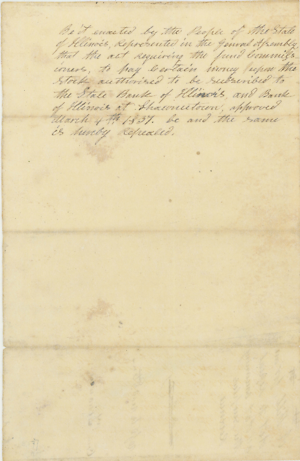 Be it enacted by the People of the State
of Illinois, represented in the General Assembly,
that the act requiring the fund Commiss-
ioners, to pay certain money upon the
stock authorized to be subscribed to
the State Bank of Illinois, and Bank
of Illinois at Shawneetown, approved
March 4th 1837. be and the same
is hereby repealed.